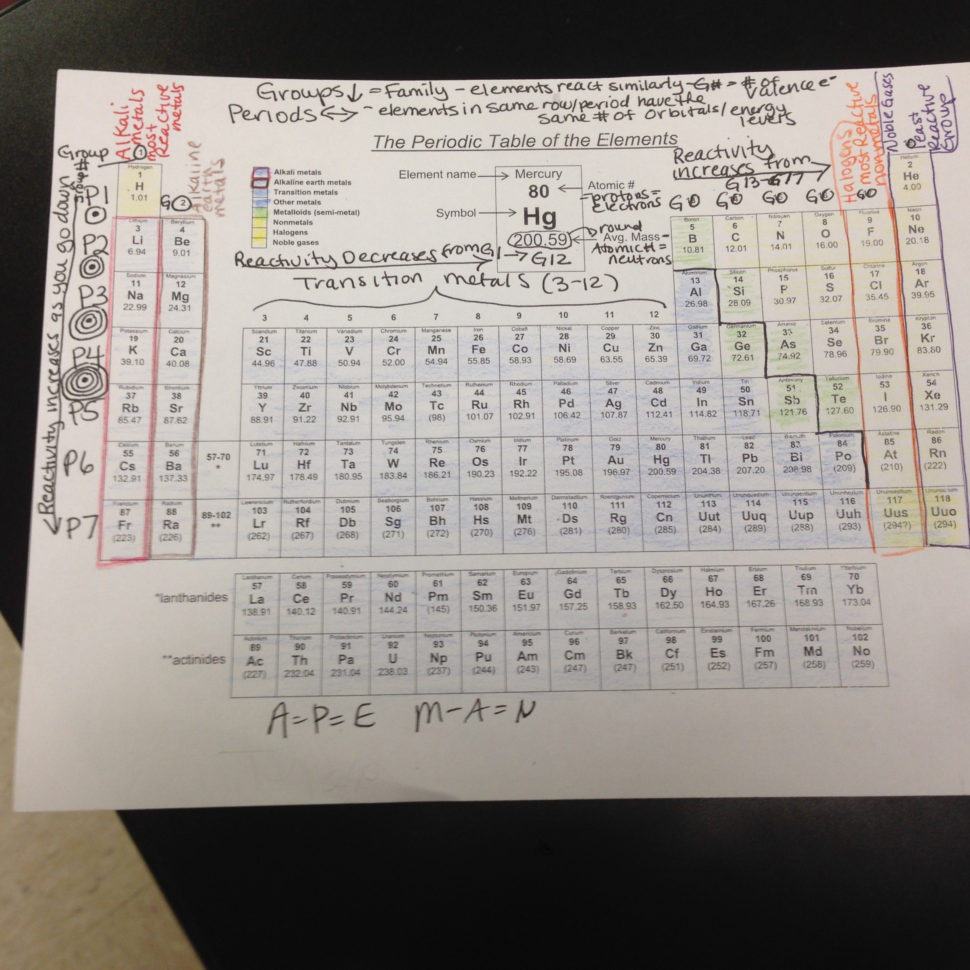 Groups ↓ = Family - elements react similarly - G# = # of valence e-
Periods <-> - elements in same row/period have the same # of orbitals/energy levels
Alkali metals most Reactive metals
Alkaline earth metals
Halogens most Reactive nonmetals
Noble Gases
Least Reactive Group
The Periodic Table of the Elements
Group 1
G 2
Reactivity increases from G13-G17
Reactivity increases as you go down
P1
P2
P3
P4
P5
P6
P7
Alkali metals
Alkaline earth metals
Transition metals
Other metals
Metalloids (semi-metal)
Nonmetals
Halogens
Noble gases
Element name → Mercury
80 ← Atomic # = protons = electrons
Symbol → Hg
200.59 ← Avg. Mass - Atomic # = neutrons
round
Reactivity Decreases from G1 → G12
Transition metals (3-12)
3 4 5 6 7 8 9 10 11 12
Hydrogen 1 H 1.01
Helium 2 He 4.00
Lithium 3 Li 6.94
Beryllium 4 Be 9.01
Boron 5 B 10.81
Carbon 6 C 12.01
Nitrogen 7 N 14.01
Oxygen 8 O 16.00
Fluorine 9 F 19.00
Neon 10 Ne 20.18
Sodium 11 Na 22.99
Magnesium 12 Mg 24.31
Aluminum 13 Al 26.98
Silicon 14 Si 28.09
Phosphorus 15 P 30.97
Sulfur 16 S 32.07
Chlorine 17 Cl 35.45
Argon 18 Ar 39.95
Potassium 19 K 39.10
Calcium 20 Ca 40.08
Scandium 21 Sc 44.96
Titanium 22 Ti 47.88
Vanadium 23 V 50.94
Chromium 24 Cr 52.00
Manganese 25 Mn 54.94
Iron 26 Fe 55.85
Cobalt 27 Co 58.93
Nickel 28 Ni 58.69
Copper 29 Cu 63.55
Zinc 30 Zn 65.39
Gallium 31 Ga 69.72
Germanium 32 Ge 72.61
Arsenic 33 As 74.92
Selenium 34 Se 78.96
Bromine 35 Br 79.90
Krypton 36 Kr 83.80
Rubidium 37 Rb 85.47
Strontium 38 Sr 87.62
Yttrium 39 Y 88.91
Zirconium 40 Zr 91.22
Niobium 41 Nb 92.91
Molybdenum 42 Mo 95.94
Technetium 43 Tc (98)
Ruthenium 44 Ru 101.07
Rhodium 45 Rh 102.91
Palladium 46 Pd 106.42
Silver 47 Ag 107.87
Cadmium 48 Cd 112.41
Indium 49 In 114.82
Tin 50 Sn 118.71
Antimony 51 Sb 121.76
Tellurium 52 Te 127.60
Iodine 53 I 126.90
Xenon 54 Xe 131.29
Cesium 55 Cs 132.91
Barium 56 Ba 137.33
57-70 *
Lutetium 71 Lu 174.97
Hafnium 72 Hf 178.49
Tantalum 73 Ta 180.95
Tungsten 74 W 183.84
Rhenium 75 Re 186.21
Osmium 76 Os 190.23
Iridium 77 Ir 192.22
Platinum 78 Pt 195.08
Gold 79 Au 196.97
Mercury 80 Hg 200.59
Thallium 81 Tl 204.38
Lead 82 Pb 207.20
Bismuth 83 Bi 208.98
Polonium 84 Po (209)
Astatine 85 At (210)
Radon 86 Rn (222)
Francium 87 Fr (223)
Radium 88 Ra (226)
89-102 **
Lawrencium 103 Lr (262)
Rutherfordium 104 Rf (267)
Dubnium 105 Db (268)
Seaborgium 106 Sg (271)
Bohrium 107 Bh (272)
Hassium 108 Hs (270)
Meitnerium 109 Mt (276)
Darmstadtium 110 Ds (281)
Roentgenium 111 Rg (280)
Copernicium 112 Cn (285)
Ununtrium 113 Uut (284)
Ununquadium 114 Uuq (289)
Ununpentium 115 Uup (288)
Ununhexium 116 Uuh (293)
Ununseptium 117 Uus (294?)
Ununoctium 118 Uuo (294)
*lanthanides
Lanthanum 57 La 138.91
Cerium 58 Ce 140.12
Praseodymium 59 Pr 140.91
Neodymium 60 Nd 144.24
Promethium 61 Pm (145)
Samarium 62 Sm 150.36
Europium 63 Eu 151.97
Gadolinium 64 Gd 157.25
Terbium 65 Tb 158.93
Dysprosium 66 Dy 162.50
Holmium 67 Ho 164.93
Erbium 68 Er 167.26
Thulium 69 Tm 168.93
Ytterbium 70 Yb 173.04
**actinides
Actinium 89 Ac (227)
Thorium 90 Th 232.04
Protactinium 91 Pa 231.04
Uranium 92 U 238.03
Neptunium 93 Np (237)
Plutonium 94 Pu (244)
Americium 95 Am (243)
Curium 96 Cm (247)
Berkelium 97 Bk (247)
Californium 98 Cf (251)
Einsteinium 99 Es (252)
Fermium 100 Fm (257)
Mendelevium 101 Md (258)
Nobelium 102 No (259)
A=P=E M-A=N